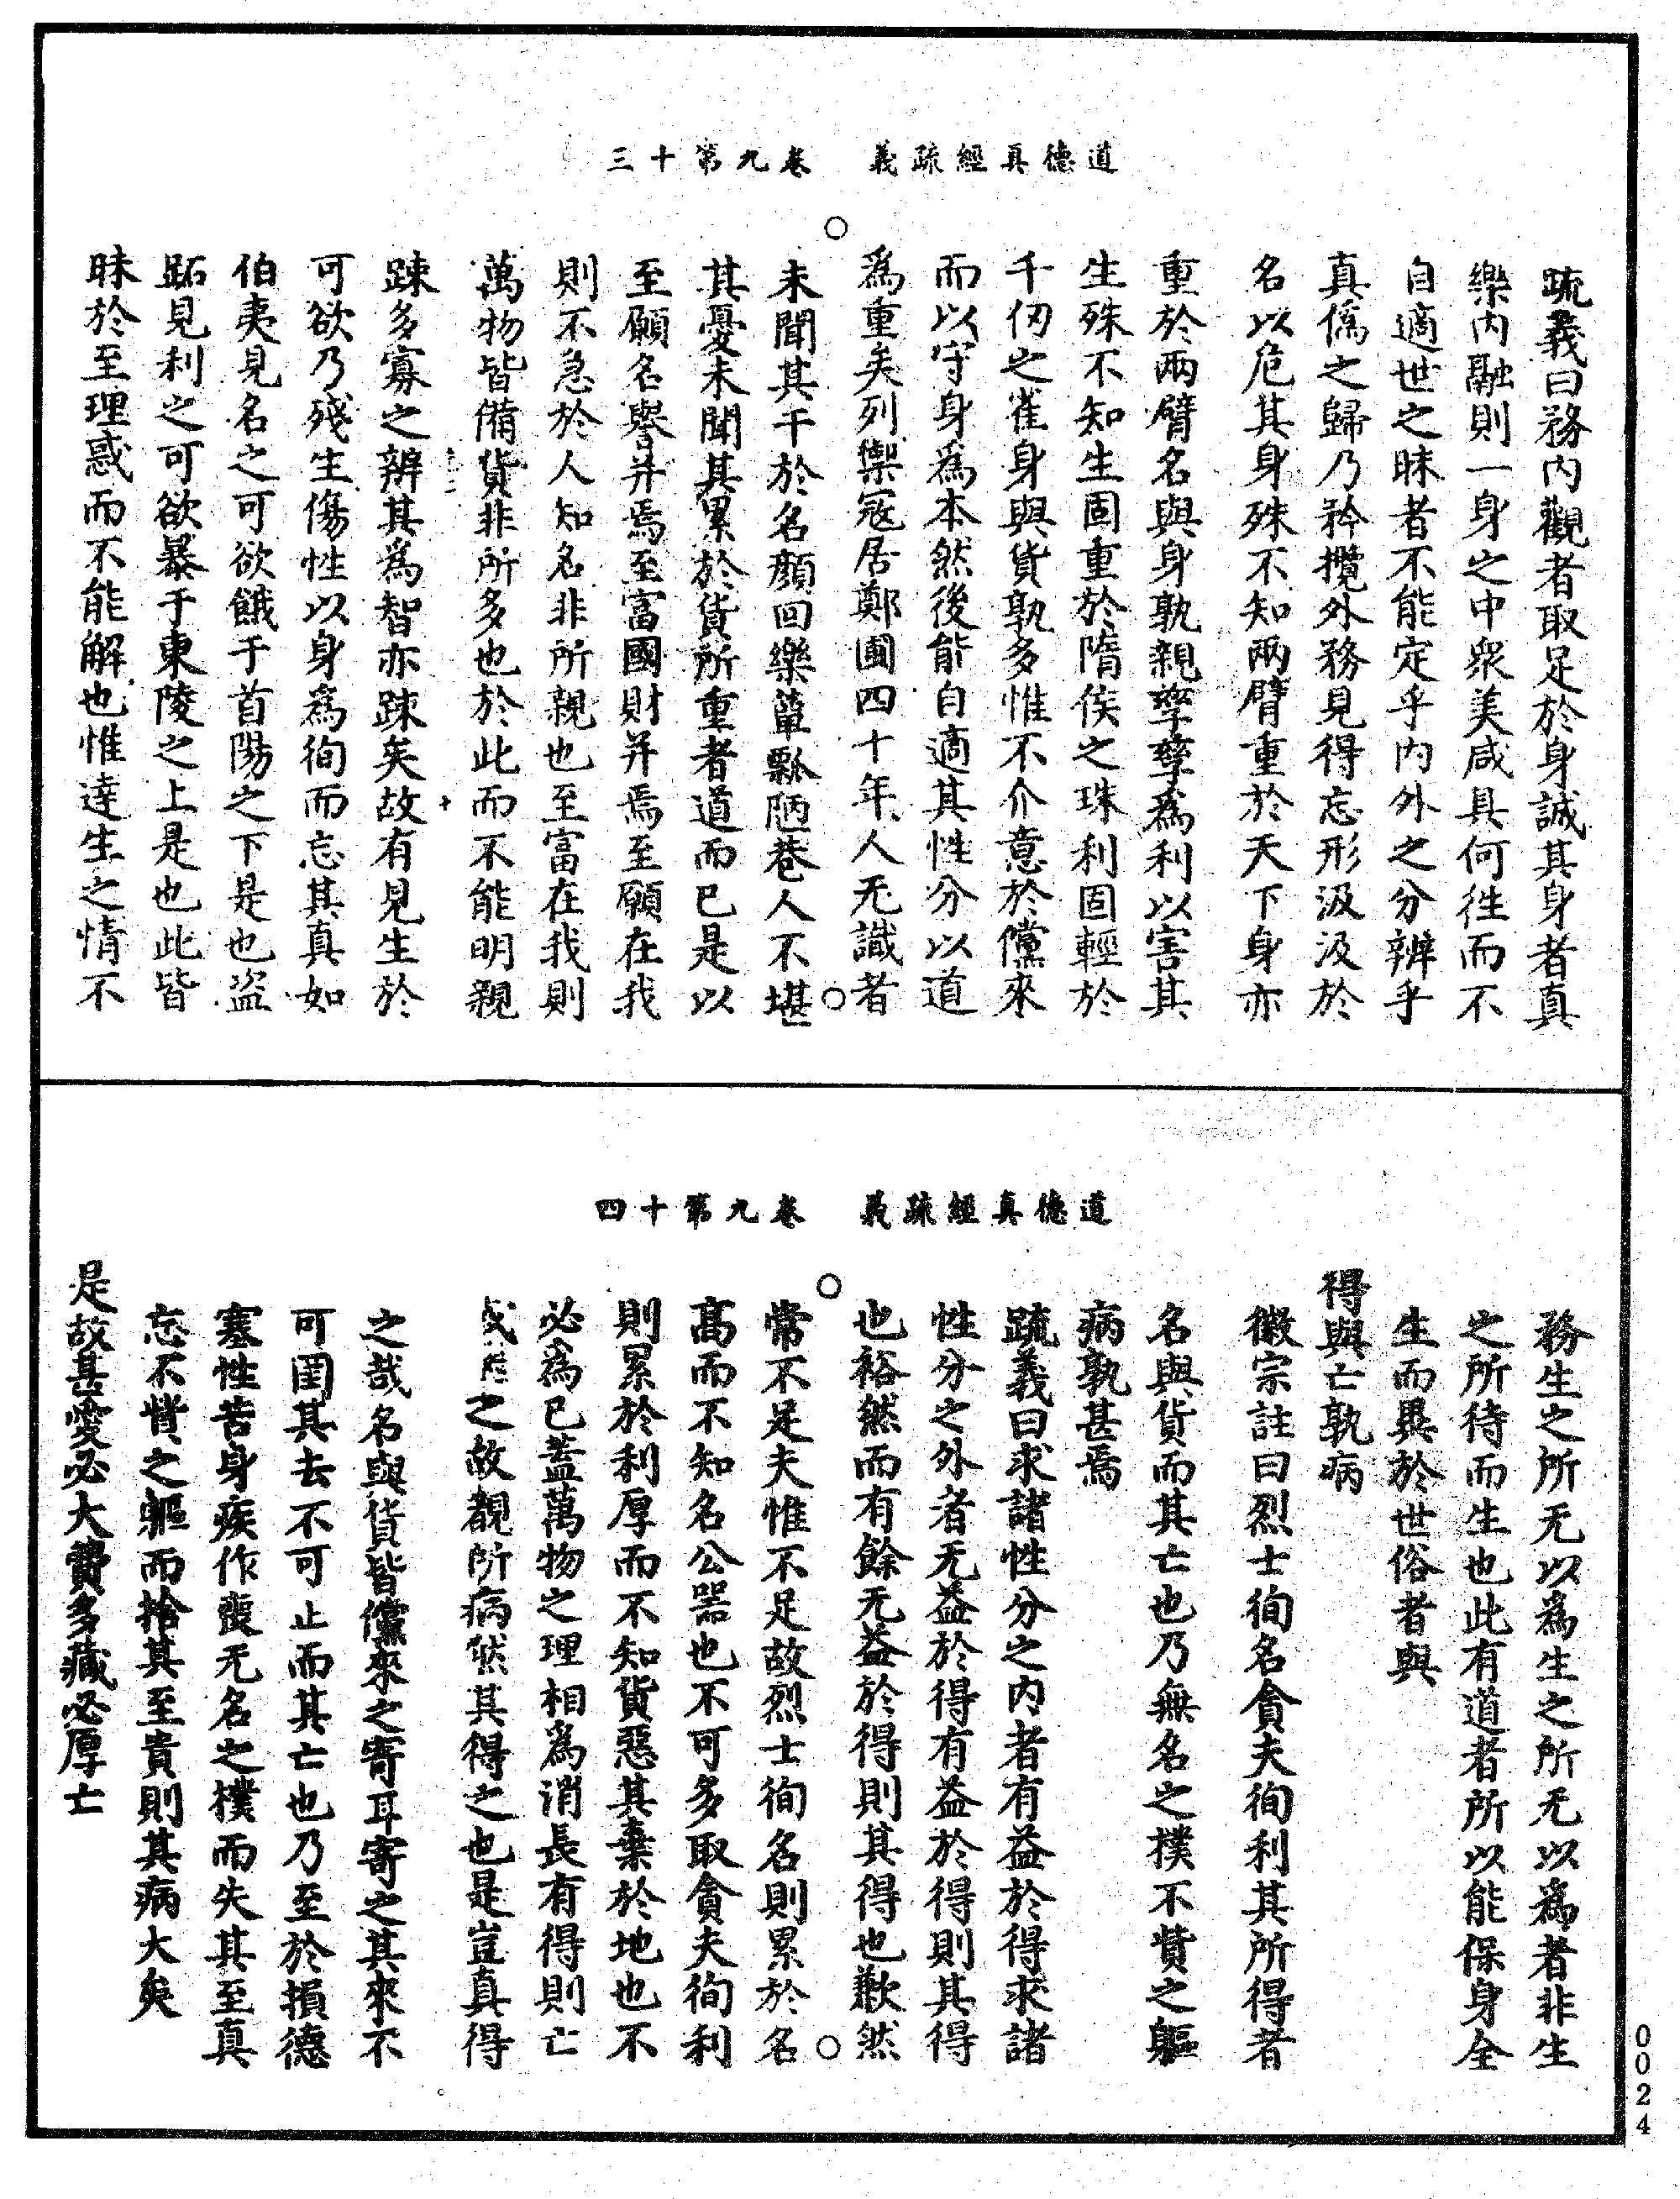 道德真經疏義　卷九第十三
疏義曰務內觀者取足於身誠其身者真
樂內融則一身之中衆美咸具何徃而不
自適世之昧者不能定乎內外之分辨乎
真僞之歸乃矜攬外務見得忘形汲汲於
名以危其身殊不知兩臂重於天下身亦
重於兩臂名與身孰親孳孳爲利以害其
生殊不知生固重於隋侯之珠利固輕於
千仞之雀身與貨孰多惟不介意於儻來
而以守身爲本然後能自適其性分以道
爲重矣列禦寇居鄭圃四十年人无識者
未聞其干於名顏回樂簞瓢陋巷人不堪
其憂未聞其累於貨所重者道而已是以
至願名譽并焉至富國財并焉至願在我
則不急於人知名非所親也至富在我則
萬物皆備貨非所多也於此而不能明親
踈多寡之辨其爲智亦踈矣故有見生於
可欲乃殘生傷性以身爲徇而忘其真如
伯夷見名之可欲餓于首陽之下是也盜
跖見利之可欲暴于東陵之上是也此皆
昧於至理惑而不能解也惟達生之情不
道德真經疏義　卷九第十四
務生之所无以爲生之所无以爲者非生
之所待而生也此有道者所以能保身全
生而異於世俗者與
得與亡孰病
徽宗註曰烈士徇名貪夫徇利其所得者
名與貨而其亡也乃無名之樸不貲之軀
病孰甚焉
疏義曰求諸性分之內者有益於得求諸
性分之外者无益於得有益於得則其得
也裕然而有餘无益於得則其得也歉然
常不足夫惟不足故烈士徇名則累於名
高而不知名公器也不可多取貪夫徇利
則累於利厚而不知貨惡其棄於地也不
必爲己蓋萬物之理相爲消長有得則亡
或之故覩所病然其得之也是豈真得
之哉名與貨皆儻來之寄耳寄之其來不
可圉其去不可止而其亡也乃至於損德
塞性苦身疾作喪无名之樸而失其至真
忘不貲之軀而捨其至貴則其病大矣
是故甚愛必大費多藏必厚亡
0024